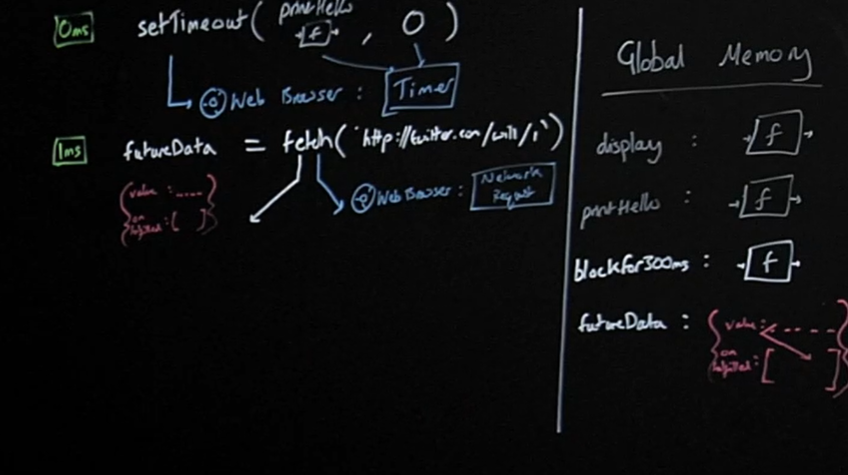 0ms setTimeout( printHello f , 0 )
Web Browser : Timer
1ms futureData = fetch('http://twitter.com/will/1')
{ value : ....
on fulfilled : [ ] }
Web Browser : Network Request
Global Memory
display : f
printHello : f
blockfor300ms : f
futureData : { value : - - - - -
on fulfilled : [ ] }